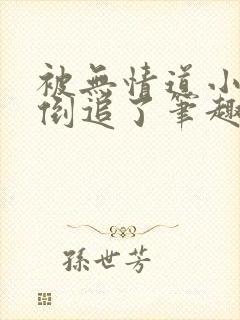 被無情道小
倒追了筆趣
孫世芳